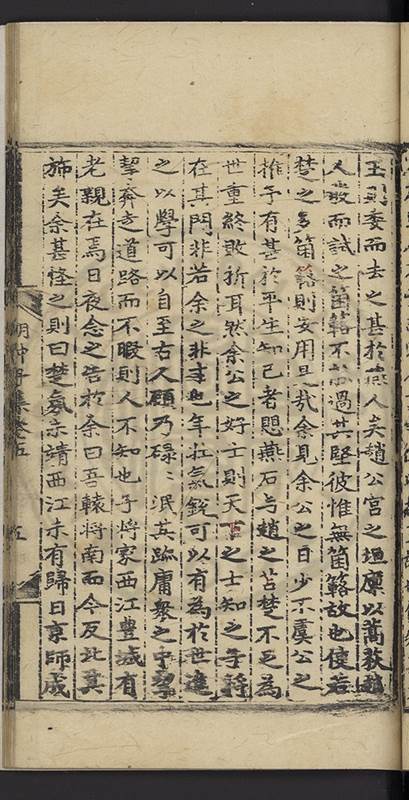 玉則委而去之甚於燕人矣趙公宮之垣廩以蒿荻趙
人發而試之箘簵不能過其堅彼惟無箘簵故也使若
楚之多箘簵則安用是哉余見余公之日少不虞公之
推予有甚於平生知己者愳燕石与趙之苫楚不足為
世重終敗折耳然余公之好士則天下之士知之予將
在其門非若余之非才也年壮氣銳可以有為於世達
之以學可以自至古人顧乃碌〻泯其跡庸衆之中挈
挈奔走道路而不暇則人不知也予將家西江豊城有
老親在焉日夜念之告於余曰吾轅将南而今反北其
斾矣余甚怪之則曰楚氛未靖西江未有歸日京師成
胡仲子集卷五
五